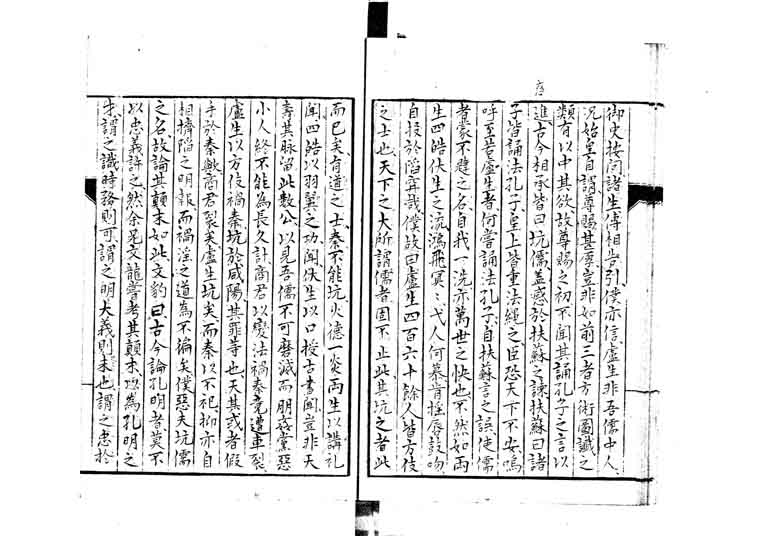 序
御史按问諸生傳相告引僕亦信盧生非吾儒中人
况始皇自謂尊賜甚厚豈非如前三者方術圖讖之
類有以中其欲故尊賜之初不聞其誦孔子之言以
進古今相承皆曰坑儒盖惑於扶蘇之諫扶蘇曰諸
子皆誦法孔子皇上皆重法繩之臣恐天下不安嗚
呼至若盧生者何嘗誦法孔子自扶蘇言之誤使儒
者蒙不韙之名自我一洗亦萬世之快也不然如两
生四皓伏生之流鴻飛冥冥弋人何慕肯摇唇鼓吻
自投於陷穽哉僕故曰盧生四百六十餘人皆方伎
之士也天下之大所謂儒者固不止此其坑之者此
而已矣有道之士秦不能坑火德一炎两生以講礼
聞四皓以羽翼之功聞伏生以口授古書聞豈非天
壽其脉留此數公以見吾儒不可磨滅而朋姦黨惡
小人終不能為長久計商君以變法禍秦竟遭車裂
盧生以方伎禍秦坑於咸陽其罪等也天其或者假
手於秦歟商君裂矣盧生坑矣而秦以不祀抑亦自
相擠陷之明報而禍淫之道為不徧矣僕惡夫坑儒
之名故論其顛末如此文豹曰古今論孔明者莫不
以忠義許之然余兄文龍嘗考其顛末以為孔明之
才謂之識時務則可謂之明大義則未也謂之忠於